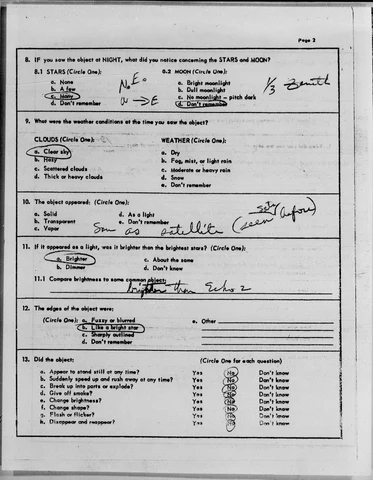 Page 2
8. IF you saw the object at NIGHT, what did you notice concerning the STARS and MOON?
8.1 STARS (Circle One): 8.2 MOON (Circle One):
a. None a. Bright moonlight
b. A few b. Dull moonlight
c. Many c. No moonlight – pitch dark
d. Don't remember d. Don't remember
N.E.
→E
1/3 Zenith
9. What were the weather conditions at the time you saw the object?
CLOUDS (Circle One): WEATHER (Circle One):
a. Clear sky a. Dry
b. Hazy b. Fog, mist, or light rain
c. Scattered clouds c. Moderate or heavy rain
d. Thick or heavy clouds d. Snow
e. Don't remember
10. The object appeared: (Circle One):
a. Solid d. As a light
b. Transparent e. Don't remember
c. Vapor
as satellite (seen before)
11. If it appeared as a light, was it brighter than the brightest stars? (Circle One):
a. Brighter c. About the same
b. Dimmer d. Don't know
11.1 Compare brightness to some common object:
brighter than Echo 2
12. The edges of the object were:
(Circle One): a. Fuzzy or blurred e. Other
b. Like a bright star
c. Sharply outlined
d. Don't remember
13. Did the object: (Circle One for each question)
a. Appear to stand still at any time? Yes No Don't know
b. Suddenly speed up and rush away at any time? Yes No Don't know
c. Break up into parts or explode? Yes No Don't know
d. Give off smoke? Yes No Don't know
e. Change brightness? Yes No Don't know
f. Change shape? Yes No Don't know
g. Flash or flicker? Yes No Don't know
h. Disappear and reappear? Yes No Don't know